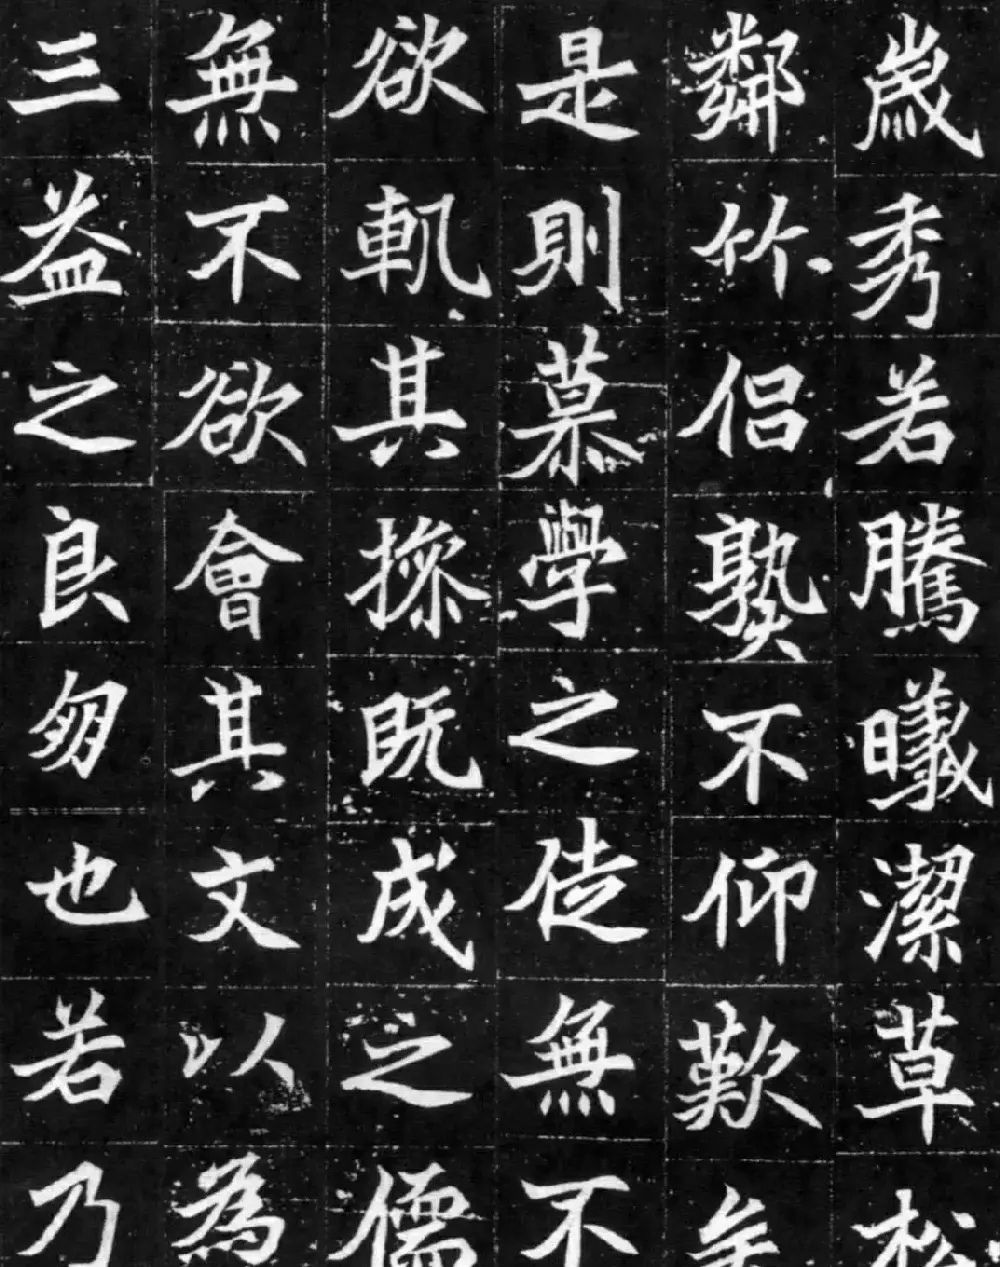 歲秀若騰曦潔草松
鄰竹侶熟不仰歎矣
是則慕學之徒無不
欲軌其操既成之儒
無不欲會其文以為
三益之良朋也若乃